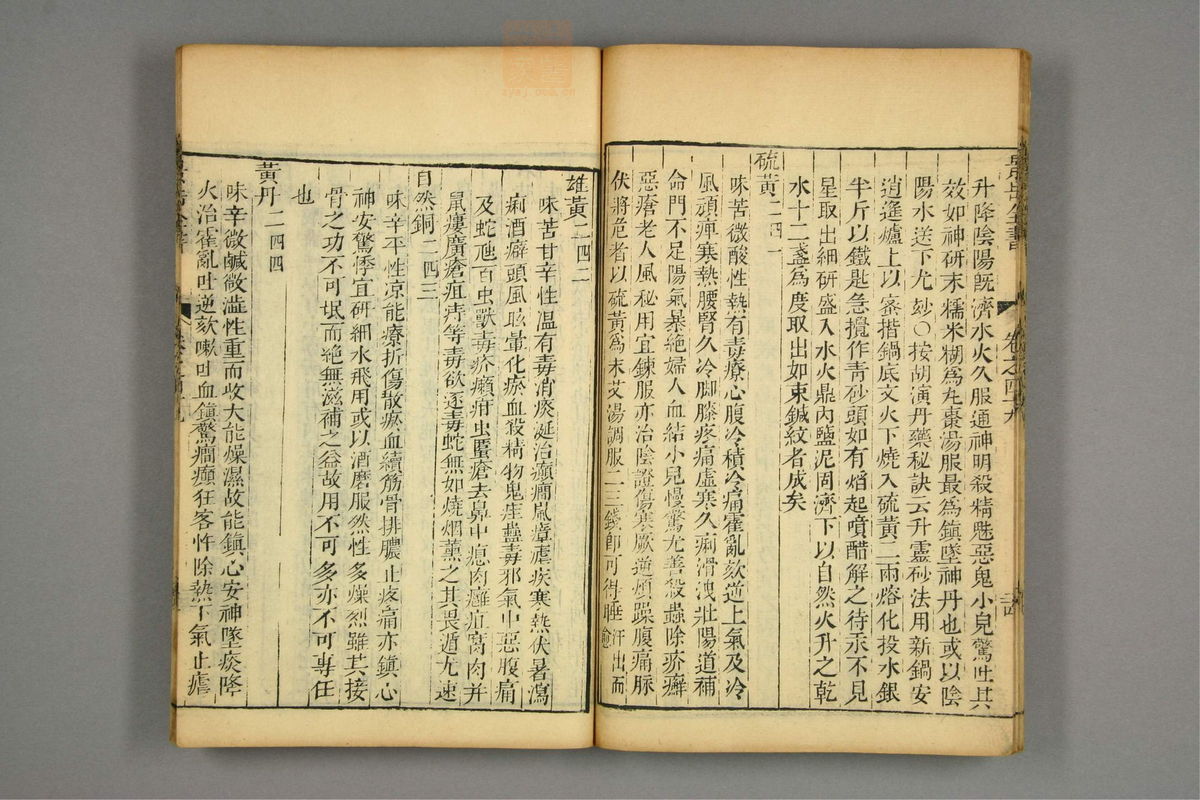 升降陰陽既濟水火久服通神明殺精魅惡鬼小兒驚吐其
效如神研末糯米糊爲丸棗湯服最爲鎮墜神丹也或以陰
陽水送下尤妙〇按胡演丹藥秘訣云升靈砂法用新鍋安
逍遙爐上以蜜揩鍋底文火下燒入硫黃二兩熔化投水銀
半斤以鐵匙急攪作青砂頭如有熖起噴醋解之待汞不見
星取出細研盛入水火鼎內鹽泥固濟下以自然火升之乾
水十二盞爲度取出如束鍼紋者成矣
硫黃二四一
味苦微酸性熱有毒療心腹冷積冷痛霍亂欬逆上氣及冷
風頑痺寒熱腰腎久冷脚膝疼痛虛寒久痢滑洩壯陽道補
命門不足陽氣暴絕婦人血結小兒慢驚尤善殺蟲除疥癬
惡瘡老人風秘用宜鍊服亦治陰證傷寒厥逆煩躁腹痛脉
伏將危者以硫黃爲末艾湯調服二三錢卽可得睡汗出而愈
雄黃二四二
味苦甘辛性溫有毒消痰涎治癲癎嵐瘴瘧疾寒熱伏暑瀉
痢酒癖頭風眩暈化瘀血殺精物鬼疰蠱毒邪氣中惡腹痛
及蛇虺百虫獸毒疥癩疳虫䘌瘡去鼻中瘜肉癰疽腐肉并
鼠瘻廣瘡疽痔等毒欲逐毒蛇無如燒烟薰之其畏遁尤速
自然銅二四三
味辛平性凉能療折傷散瘀血續筋骨排膿止疼痛亦鎮心
神安驚悸宜研細水飛用或以酒磨服然性多燥烈雖其接
骨之功不可泯而絕無滋補之益故用不可多亦不可專任
也
黃丹二四四
味辛微鹹微澁性重而收大能燥濕故能鎮心安神墜痰降
火治霍亂吐逆欬嗽吐血鎮驚癎癲狂客忤除熱下氣止瘧